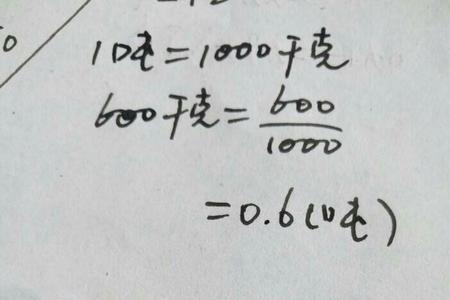 1吨=1000千克
600千克=600/1000
=0.6(吨)